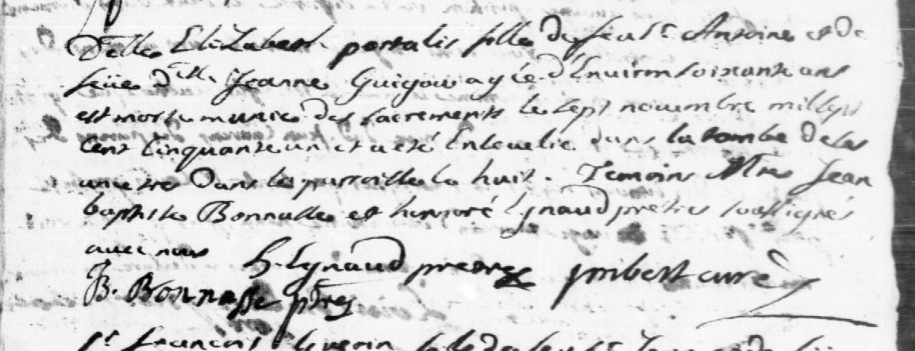 Delle Elizabeth portalis fille de feu Sr Antoine et de
feüe delle Jeanne Guigou agée d'Environ soixante ans
est morte munie des sacrements le sept novembre mil sept
cent cinquante un et a été Ensevelie dans la tombe de ses
ancetre Dans la parroisse le huit. Temoins Mrs Jean
baptiste Bonnasse et honnoré Eynaud pretres soussignés
avec nous H. Eynaud pretre jmbert curé
B. Bonnasse ptre
Sr françois fille de feu Sr